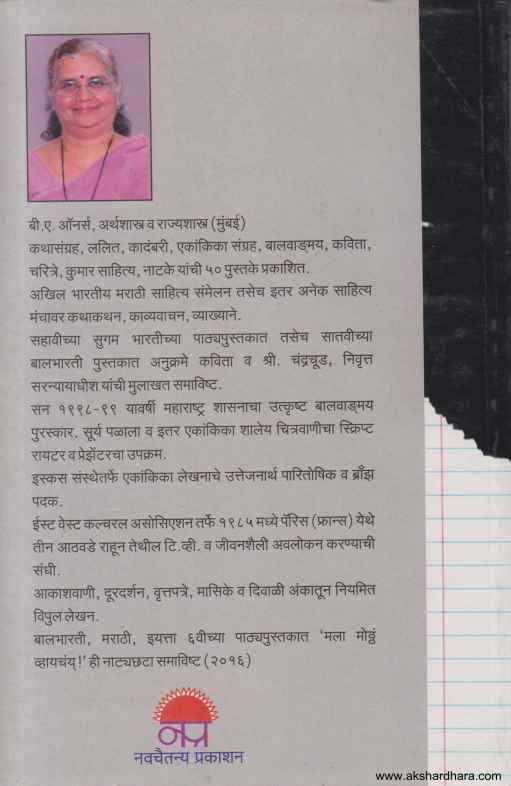 बी.ए. ऑनर्स, अर्थशास्त्र व राज्यशास्त्र (मुंबई)
कथासंग्रह, ललित, कादंबरी, एकांकिका संग्रह, बालवाङ्मय, कविता,
चरित्रे, कुमार साहित्य, नाटके यांची ५० पुस्तके प्रकाशित.
अखिल भारतीय मराठी साहित्य संमेलन तसेच इतर अनेक साहित्य
मंचावर कथाकथन, काव्यवाचन, व्याख्याने.
सहावीच्या सुगम भारतीच्या पाठ्यपुस्तकात तसेच सातवीच्या
बालभारती पुस्तकात अनुक्रमे कविता व श्री. चंद्रचूड, निवृत्त
सरन्यायाधीश यांची मुलाखत समाविष्ट.
सन १९९८-९९ यावर्षी महाराष्ट्र शासनाचा उत्कृष्ट बालवाङ्मय
पुरस्कार. सूर्य पळाला व इतर एकांकिका शालेय चित्रवाणीचा स्क्रिप्ट
रायटर व प्रेझेंटरचा उपक्रम.
इस्कस संस्थेतर्फे एकांकिका लेखनाचे उत्तेजनार्थ पारितोषिक व ब्राँझ
पदक.
ईस्ट वेस्ट कल्चरल असोसिएशन तर्फे १९८५ मध्ये पॅरिस (फ्रान्स) येथे
तीन आठवडे राहून तेथील टि.व्ही. व जीवनशैली अवलोकन करण्याची
संधी.
आकाशवाणी, दूरदर्शन, वृत्तपत्रे, मासिके व दिवाळी अंकातून नियमित
विपुल लेखन.
बालभारती, मराठी, इयत्ता ६वीच्या पाठ्यपुस्तकात 'मला मोठ्ठं
व्हायचंय् !' ही नाट्यछटा समाविष्ट (२०१६)
नप्र
नवचैतन्य प्रकाशन
www.akshardhara.com